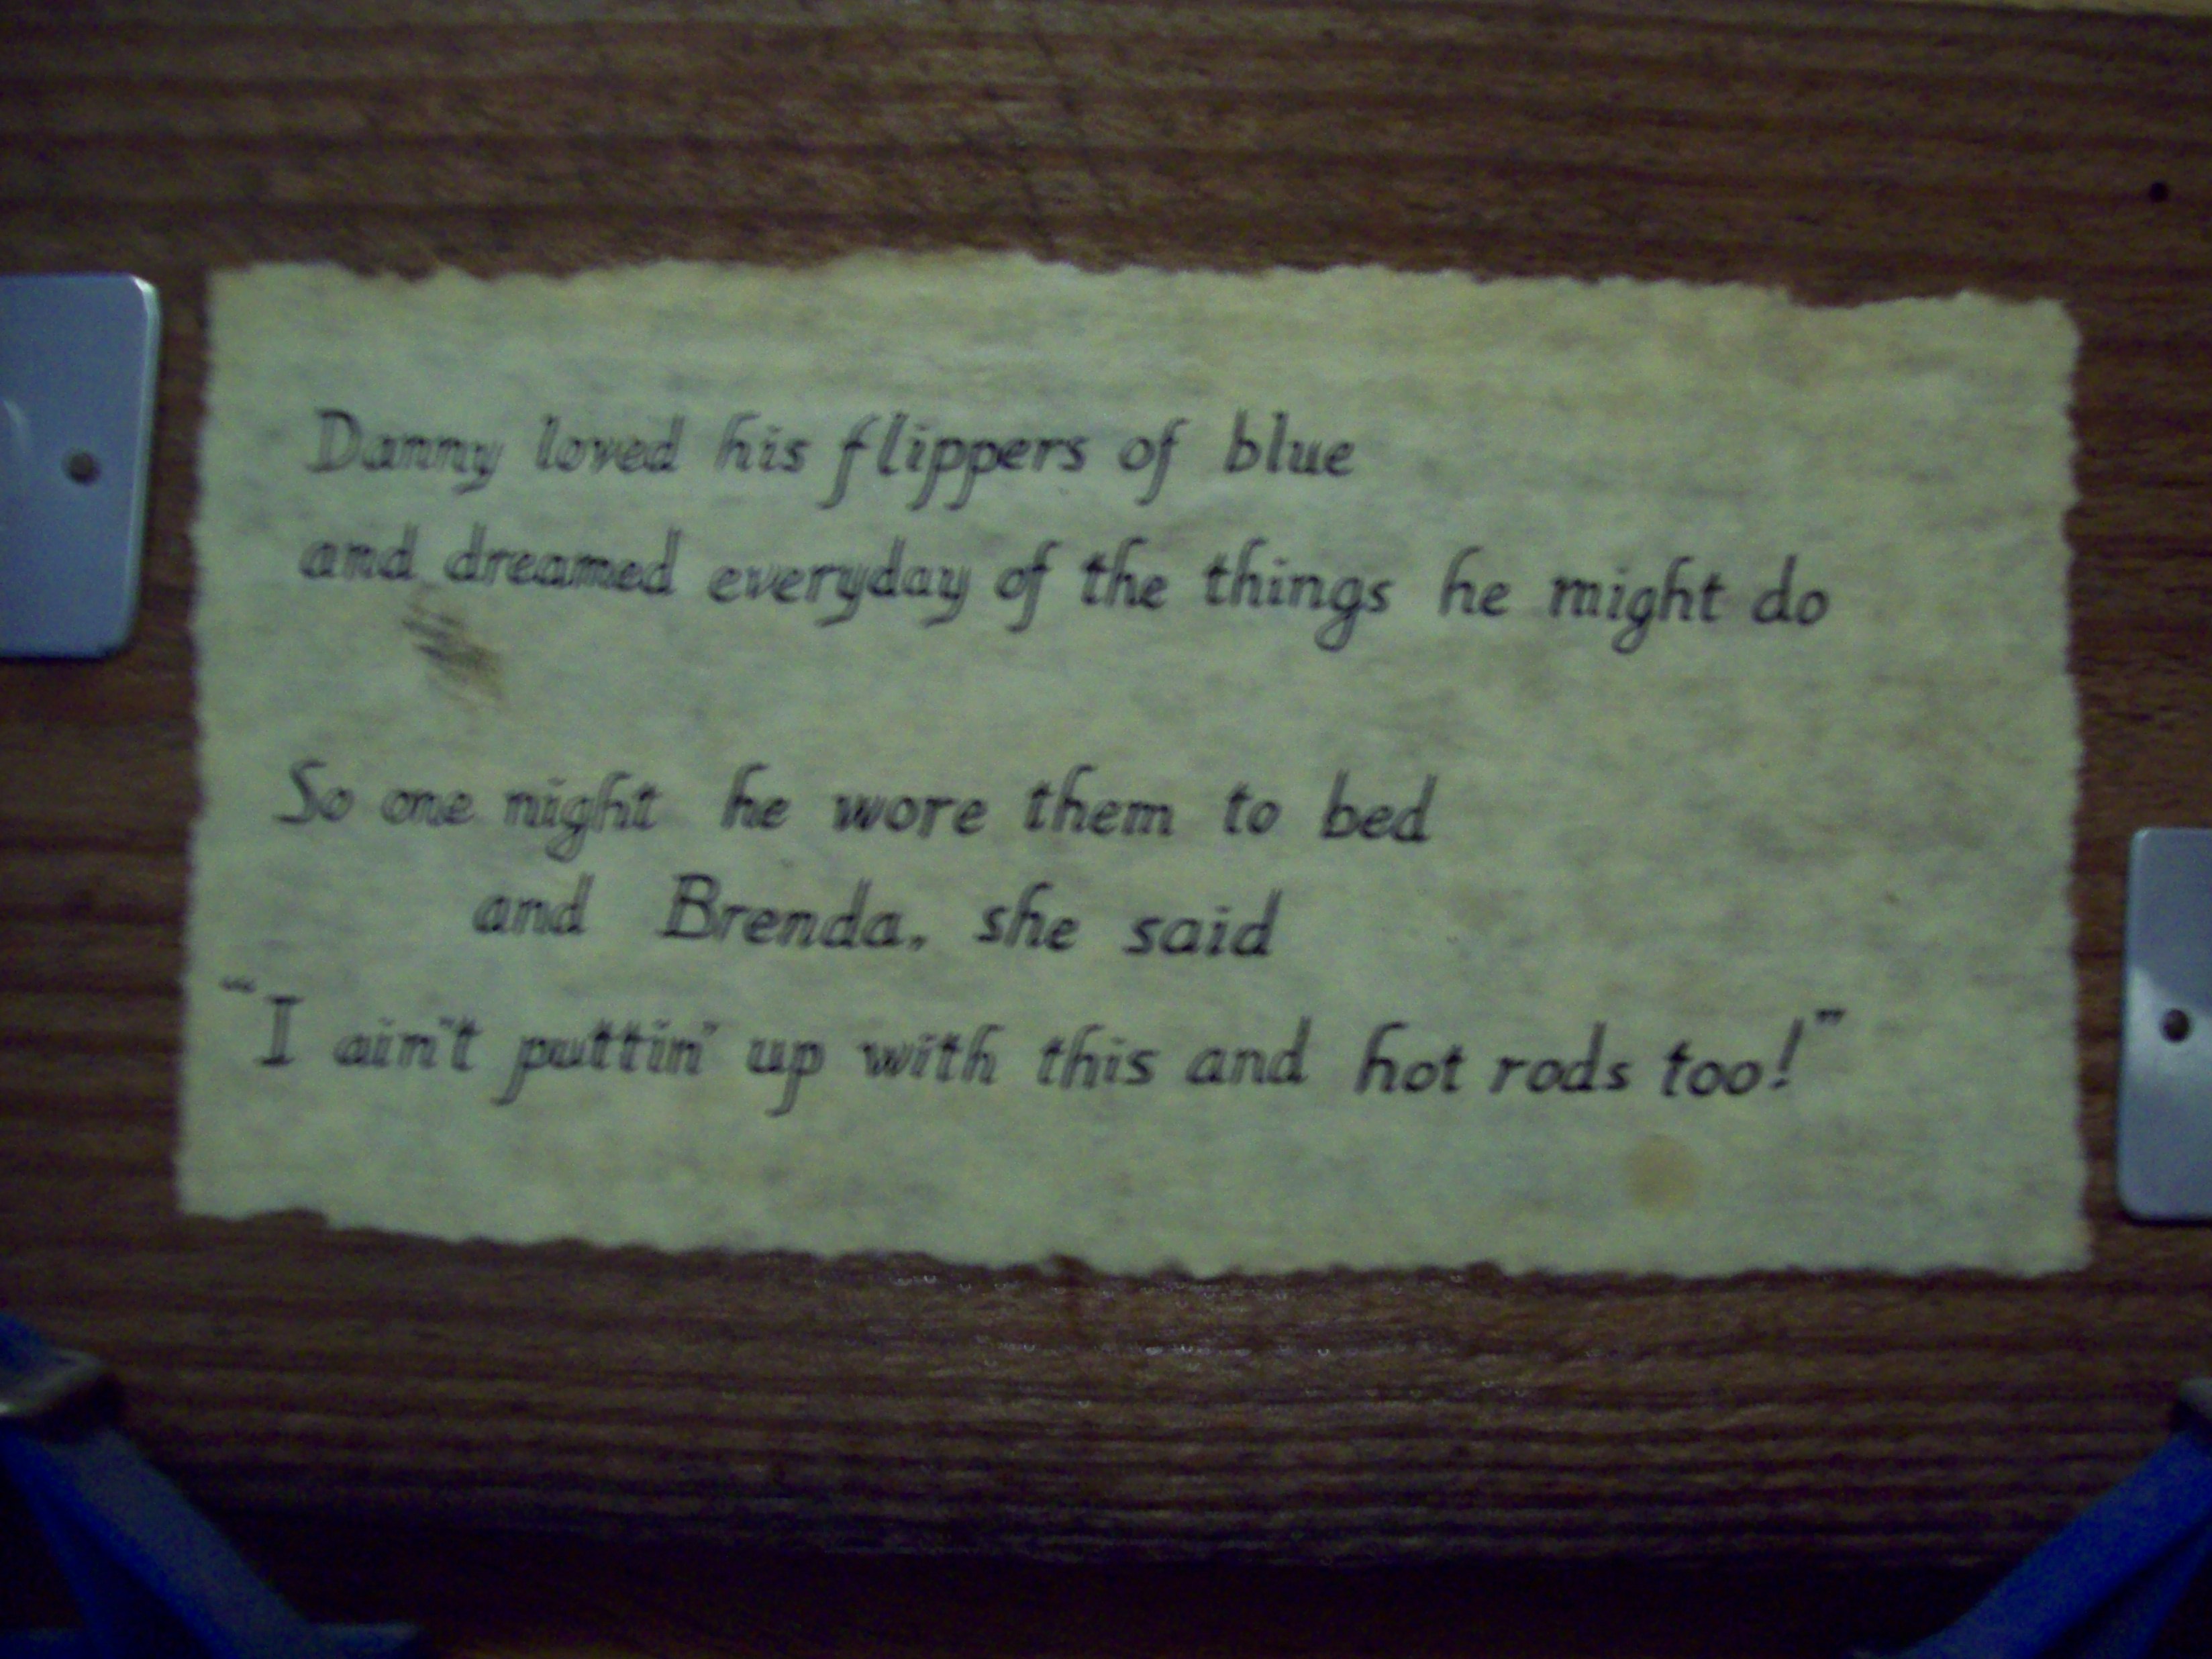 Danny loved his flippers of blue
and dreamed everyday of the things he might do
So one night he wore them to bed
and Brenda, she said
"I ain't puttin' up with this and hot rods too!"